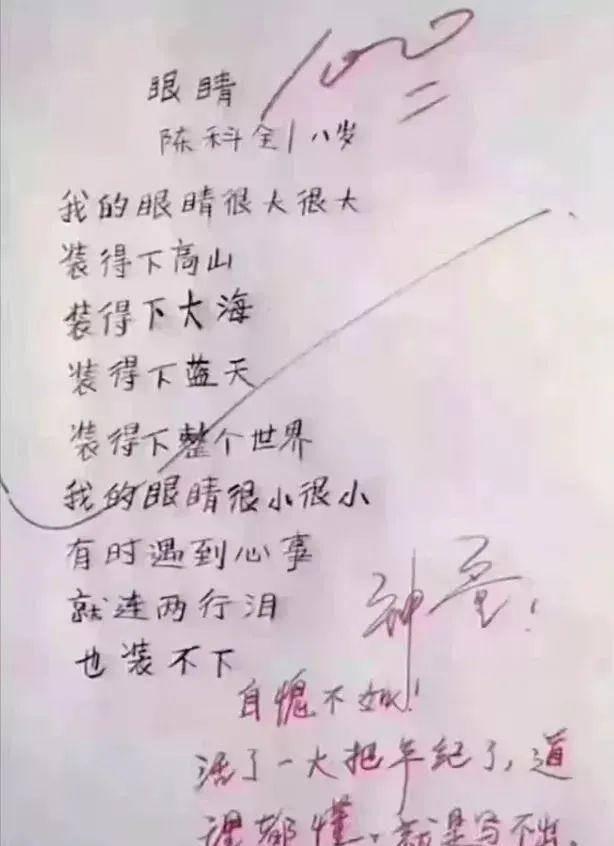 眼睛
100
陈科全 八岁
我的眼睛很大很大
装得下高山
装得下大海
装得下蓝天
装得下整个世界
我的眼睛很小很小
有时遇到心事
就连两行泪
也装不下
神童!
自愧不如!
活了一大把年纪了,道
理都懂,就是写不出,